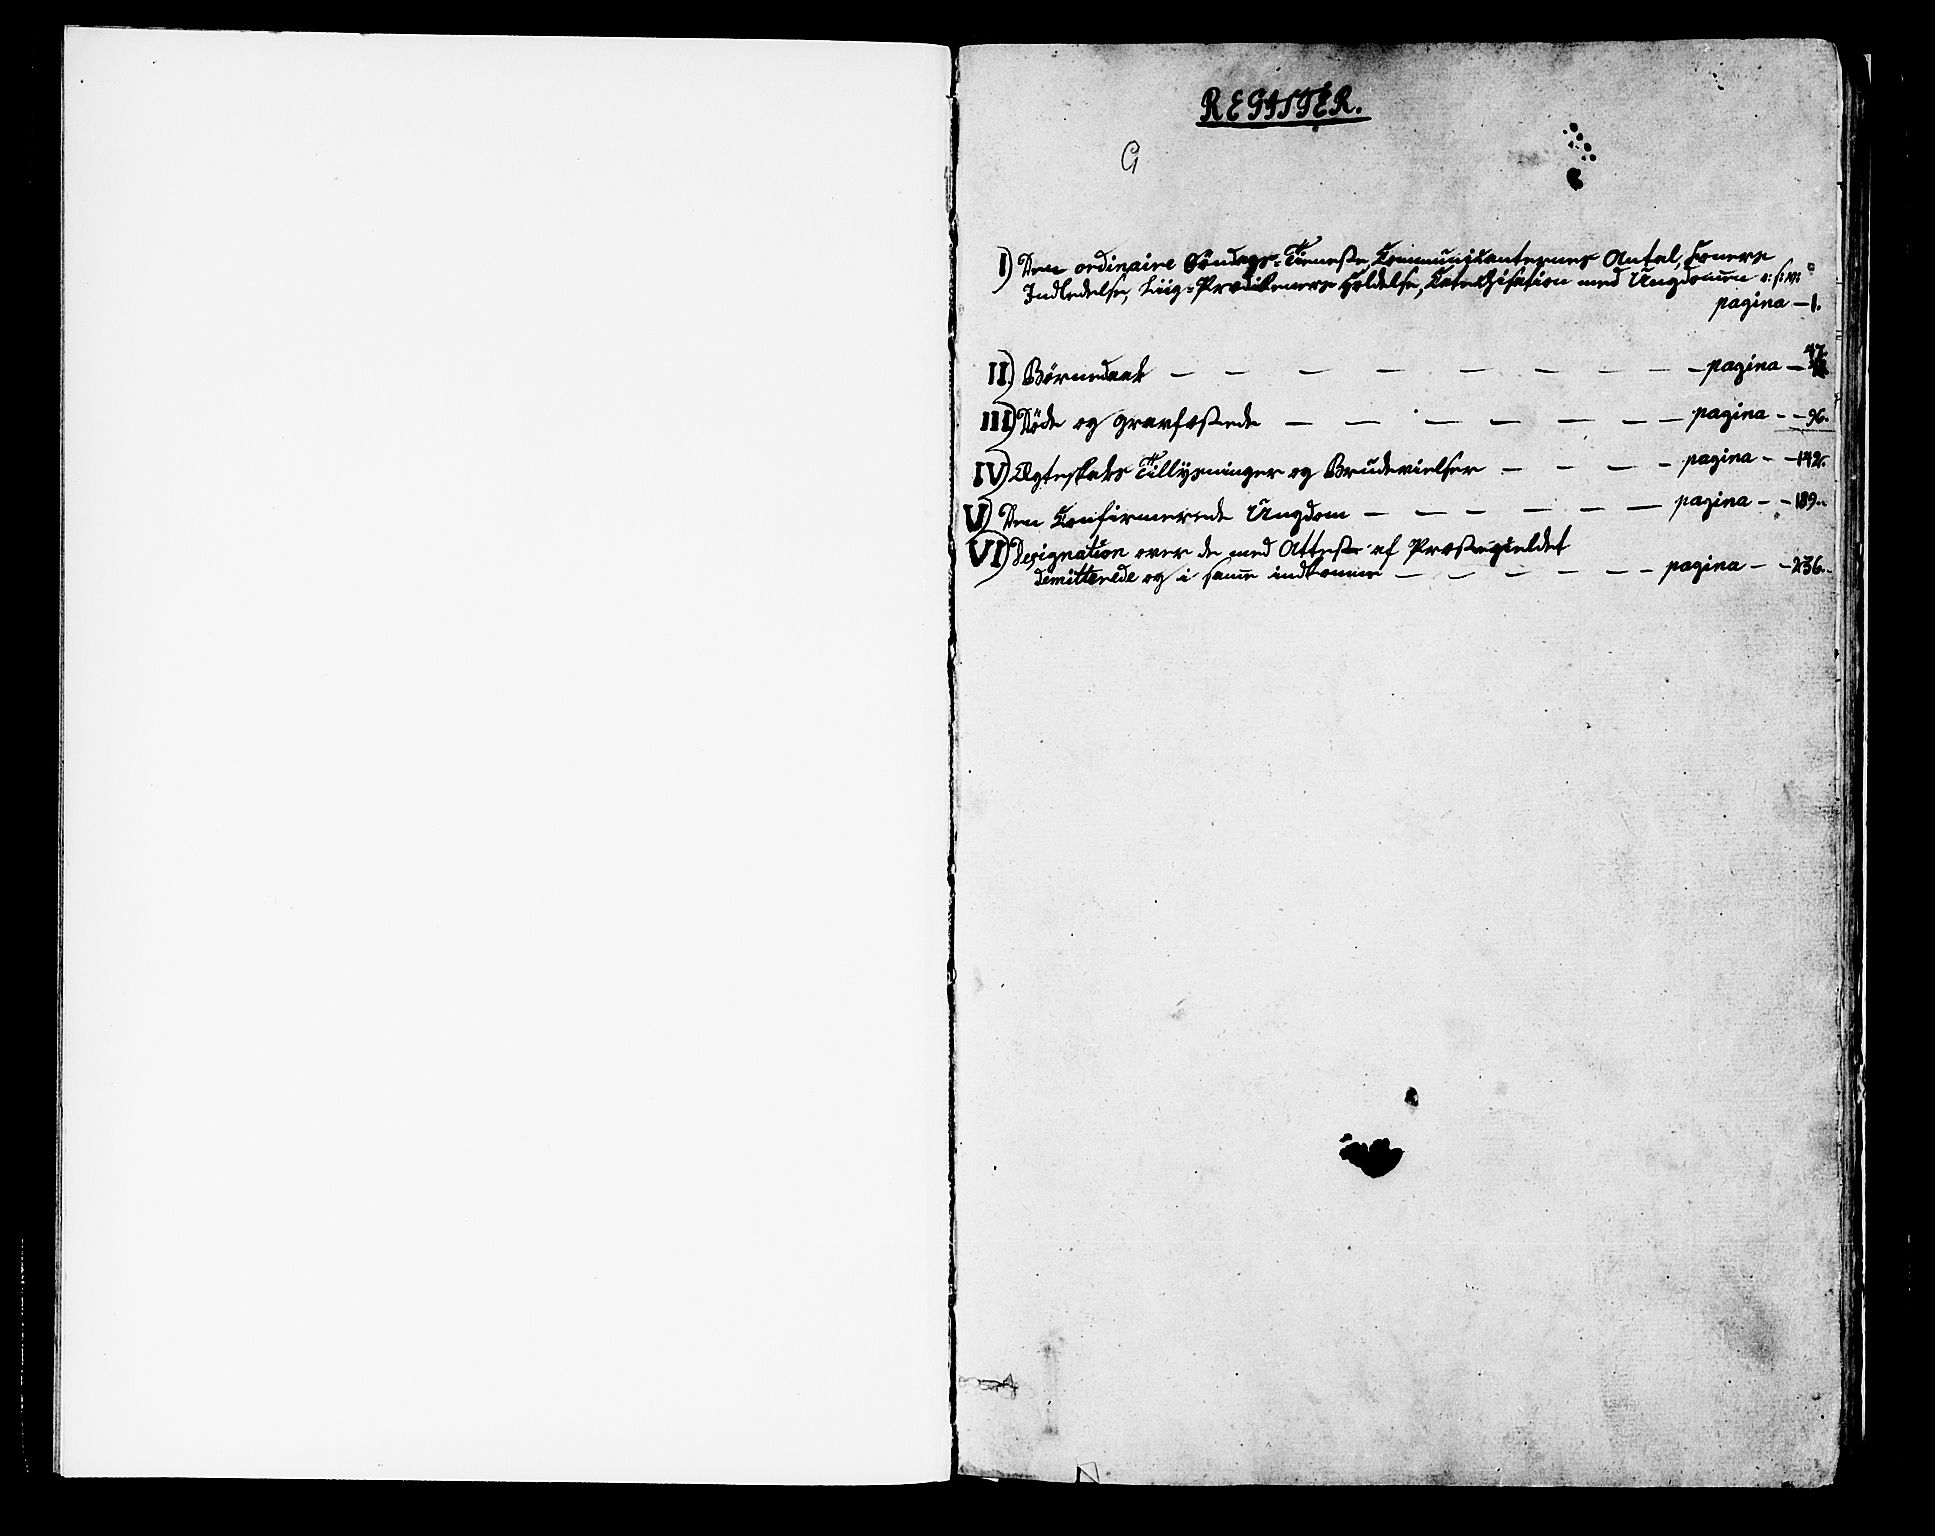 REGISTER.
G
I) Den ordinaire Söndags-Tieneste, Communicanternes Antal, Koners
Indledelse, Liig-Prædikeners Holdelse, Catechisation med Ungdommen
pagina — 1.
II) Börnedaab — — — — — — — — — pagina — 47.
III) Döde og gravfæstede — — — — — — — pagina - - 96.
IV) Ægteskabs Tillysninger og Brudevielser — — — — pagina - - 142.
V) Den Confirmerede Ungdom — — — — — — pagina - - 189.
VI) Designation over de med Atteste af Præstegieldet
demitterede og i samme indkomne — — — — — — pagina - - 236.